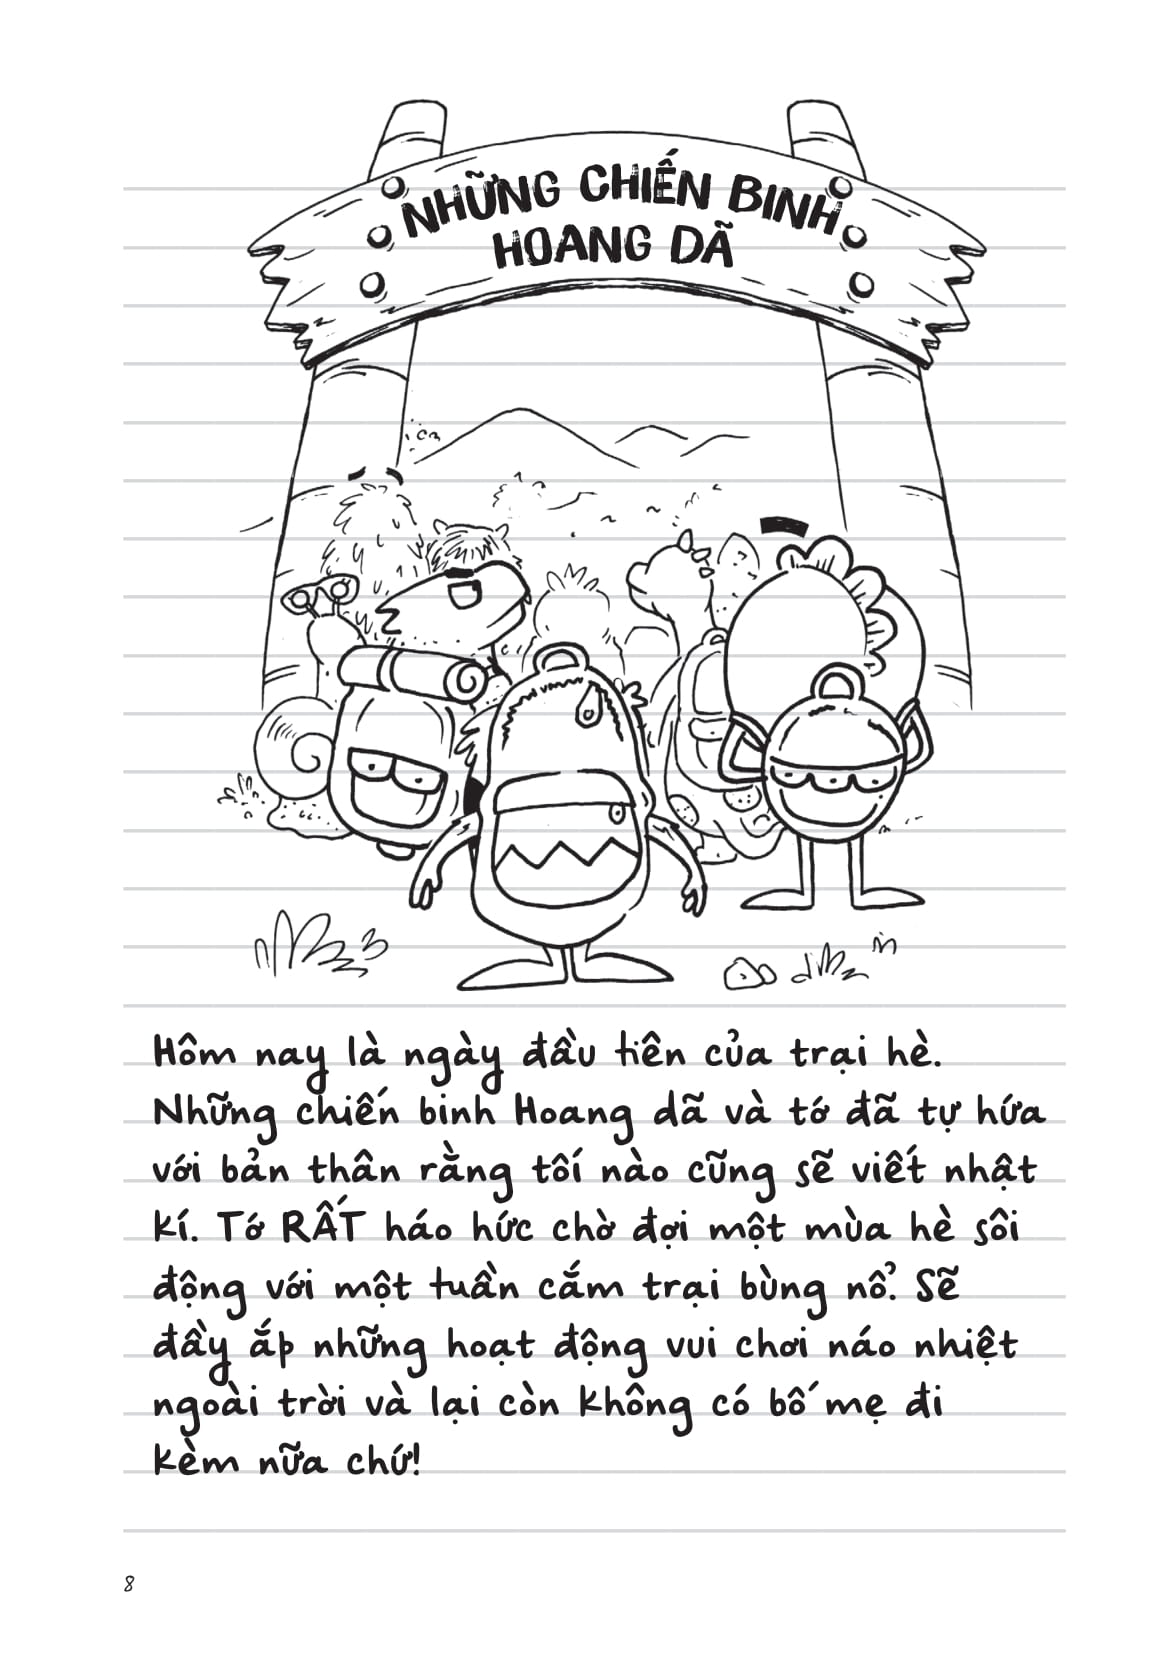 NHỮNG CHIẾN BINH
HOANG DÃ
Hôm nay là ngày đầu tiên của trại hè.
Những chiến binh Hoang dã và tớ đã tự hứa
với bản thân rằng tối nào cũng sẽ viết nhật
kí. Tớ RẤT háo hức chờ đợi một mùa hè sôi
động với một tuần cắm trại bùng nổ. Sẽ
đầy ắp những hoạt động vui chơi náo nhiệt
ngoài trời và lại còn không có bố mẹ đi
kèm nữa chứ!
8